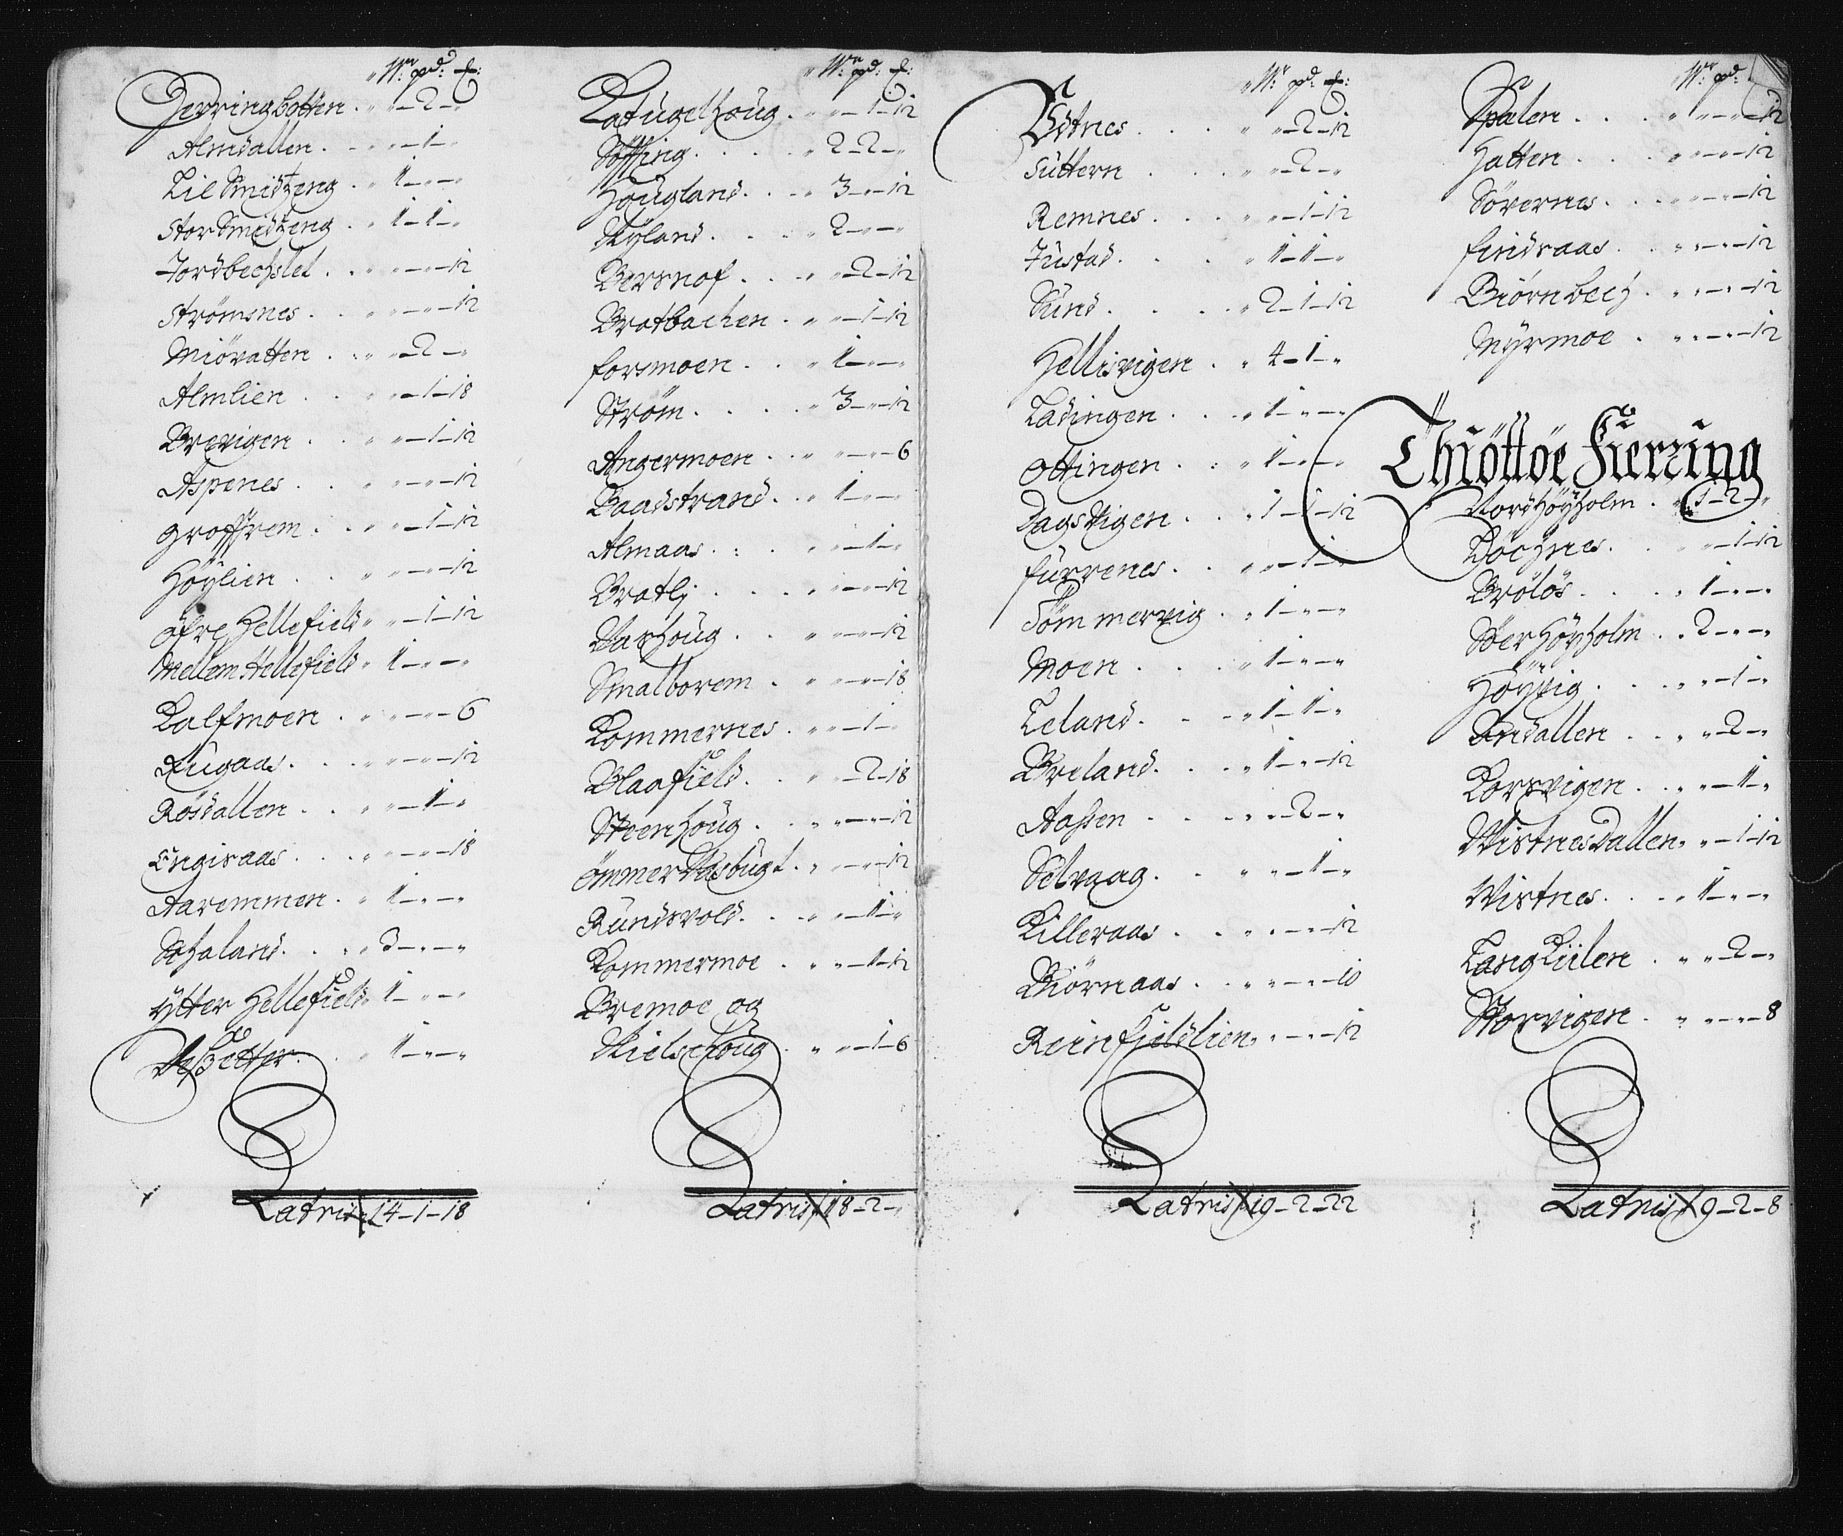 Wr: pd: £:
Herringbotten . „ 1 – 2 – „
Almdallen . . „ „ – 1 – „
Lil Smidtzeng . „ 1 – „ – „
Stor Smidtzeng . „ 1 – 1 – „
Jordbechslet . . „ „ – „ – 12
Strømsnes . . „ „ – „ – 12
Miövatten . . „ „ – 2 – „
Almlien . . „ „ – 1 – 18
Brevigen . . „ „ – 1 – 12
Aspenes . . „ „ – „ – 12
groffrem . . „ „ – 1 – 12
Höylien . . „ „ – „ – 12
öfre Hellefield „ „ – 1 – 12
Mellem Hellefield „ 1 – „ – „
Kalfmoen . „ „ – „ – 6
Kugaas . . „ „ – „ – 12
Rösdallen . . „ „ – 1 – „
Engisaas . . „ „ – „ – 18
Aaremmen . „ 1 – „ – „
Søfaland . . „ 3 – „ – „
ÿtter Hellefield „ 1 – „ – „
. „ 1 – „ – „
Latris 14 – 1 – 18
Wr: pd: £:
Katugelhoug . „ „ – 1 – 12
Søffting . . „ 2 – 2 – „
Hougland . . „ 3 – „ – 12
Kÿland . . „ 2 – „ – „
Bersnof . . „ „ – 2 – 12
Bratbachen . „ „ – 1 – 12
forsmoen . . „ 1 – „ – „
Strøm . . . „ 3 – „ – 12
Angermoen . . „ „ – „ – 6
Baadstrand . „ 1 – „ – „
Almaas . : . „ „ – 1 – „
Bratlj . . . „ „ – „ – 12
Varhoug . . „ „ – „ – 12
Smalborem . „ „ – „ – 18
Kommernes . „ „ – 1 – „
Blaafield . . „ „ – 2 – 18
Steenhoug . . „ „ – „ – 12
. „ „ – „ – 12
Rundsvold . . „ „ – 1 – „
Kommermoe . „ „ – 1 – 12
Bremoe og
Kielsehoug . „ „ – 1 – 6
Latris 18 – 2 – „
Wr: pd: £:
Vdtnes . . . „ „ – 2 – 12
Suttern . . . „ „ – 2 – „
Remnes . . . „ „ – 1 – 12
Justad . . . „ 1 – 1 – „
Sund . . . „ 2 – 1 – 12
Hellisvigen . „ 4 – 1 – „
Ladingen . . „ 1 – „ – „
Ottingen . : „ 1 – „ – „
Dagsvigen . . „ 1 – 1 – 12
furrenes . . „ „ – 1 – „
Tömmervig . „ 1 – „ – „
Moen . . . „ 1 – „ – „
Leland . . – „ 1 – 1 – „
Breland . . . „ 1 – „ – 12
Aassen . . . „ „ – 2 – „
Selvaag . . „ „ – 1 – „
Killeraas . . „ „ – „ – 12
Biörnaas . . „ „ – „ – 10
Reinfjeldlien „ „ – „ – 12
Latris 19 – 2 – 22
Wr pd
Spalen . . . „ „ – „ – 12
Hatten . . . „ „ – „ – 12
Sövernes . . „ „ – „ – 12
findraas . . „ „ – „ – 12
Biørnbech . „ „ – „ – 12
Myrmoe . „ „ – „ – 12
Thiöttöe Fierring
Nordhöÿholm . „ 1 – 2 – „
Döchnes . . „ „ – 1 – 12
Brölös . . . „ 1 – „ – „
Söerhöÿholm . „ 2 – „ – „
Höÿvig . . . „ „ – 1 – „
Andallen . . „ „ – 2 – „
Korsvigen . . „ „ – 1 – „
Wistnesdallen „ „ – 1 – 12
Wistnes . . . „ 1 – „ – „
Langkiilen . „ „ – 2 – „
Storvigen . „ „ – „ – 8
Latris 9 – 2 – 8